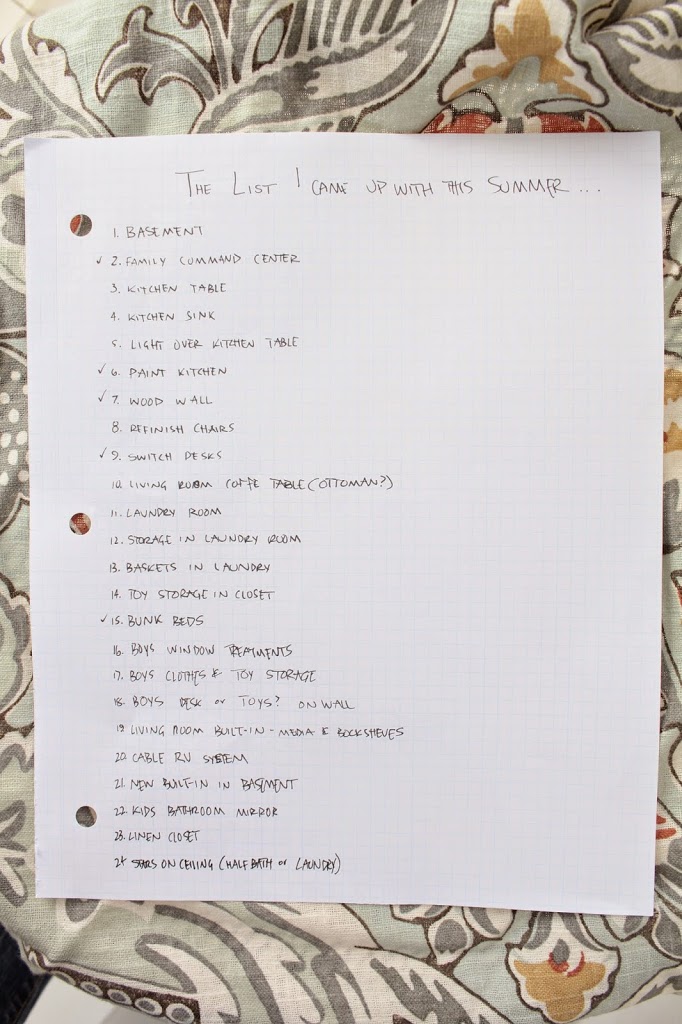 THE LIST I CAME UP WITH THIS SUMMER...
1. BASEMENT
✓ 2. FAMILY COMMAND CENTER
3. KITCHEN TABLE
4. KITCHEN SINK
5. LIGHT OVER KITCHEN TABLE
✓ 6. PAINT KITCHEN
✓ 7. WOOD WALL
8. REFINISH CHAIRS
✓ 9. SWITCH DESKS
10. LIVING ROOM COFFE TABLE (OTTOMAN?)
11. LAUNDRY ROOM
12. STORAGE IN LAUNDRY ROOM
13. BASKETS IN LAUNDRY
14. TOY STORAGE IN CLOSET
✓ 15. BUNK BEDS
16. BOYS WINDOW TREATMENTS
17. BOYS CLOTHES & TOY STORAGE
18. BOYS DESK or TOYS? ON WALL
19. LIVING ROOM BUILT-IN - MEDIA & BOOKSHEVES
20. CABLE RV SYSTEM
21. NEW BUILT-IN IN BASEMENT
22. KIDS BATHROOM MIRROR
23. LINEN CLOSET
24 STARS ON CEILING (HALF BATH or LAUNDRY)